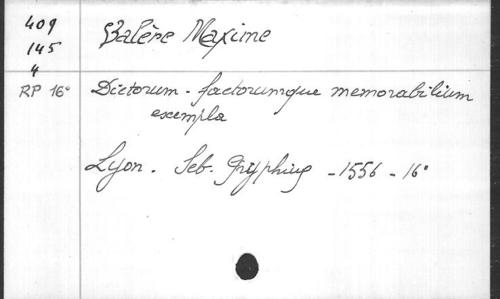 409
145
4
RP 16°
Valère Maxime
Dictorum - factorumque memorabilium
exempla
Lyon. Seb. Gryphius - 1556 - 16°